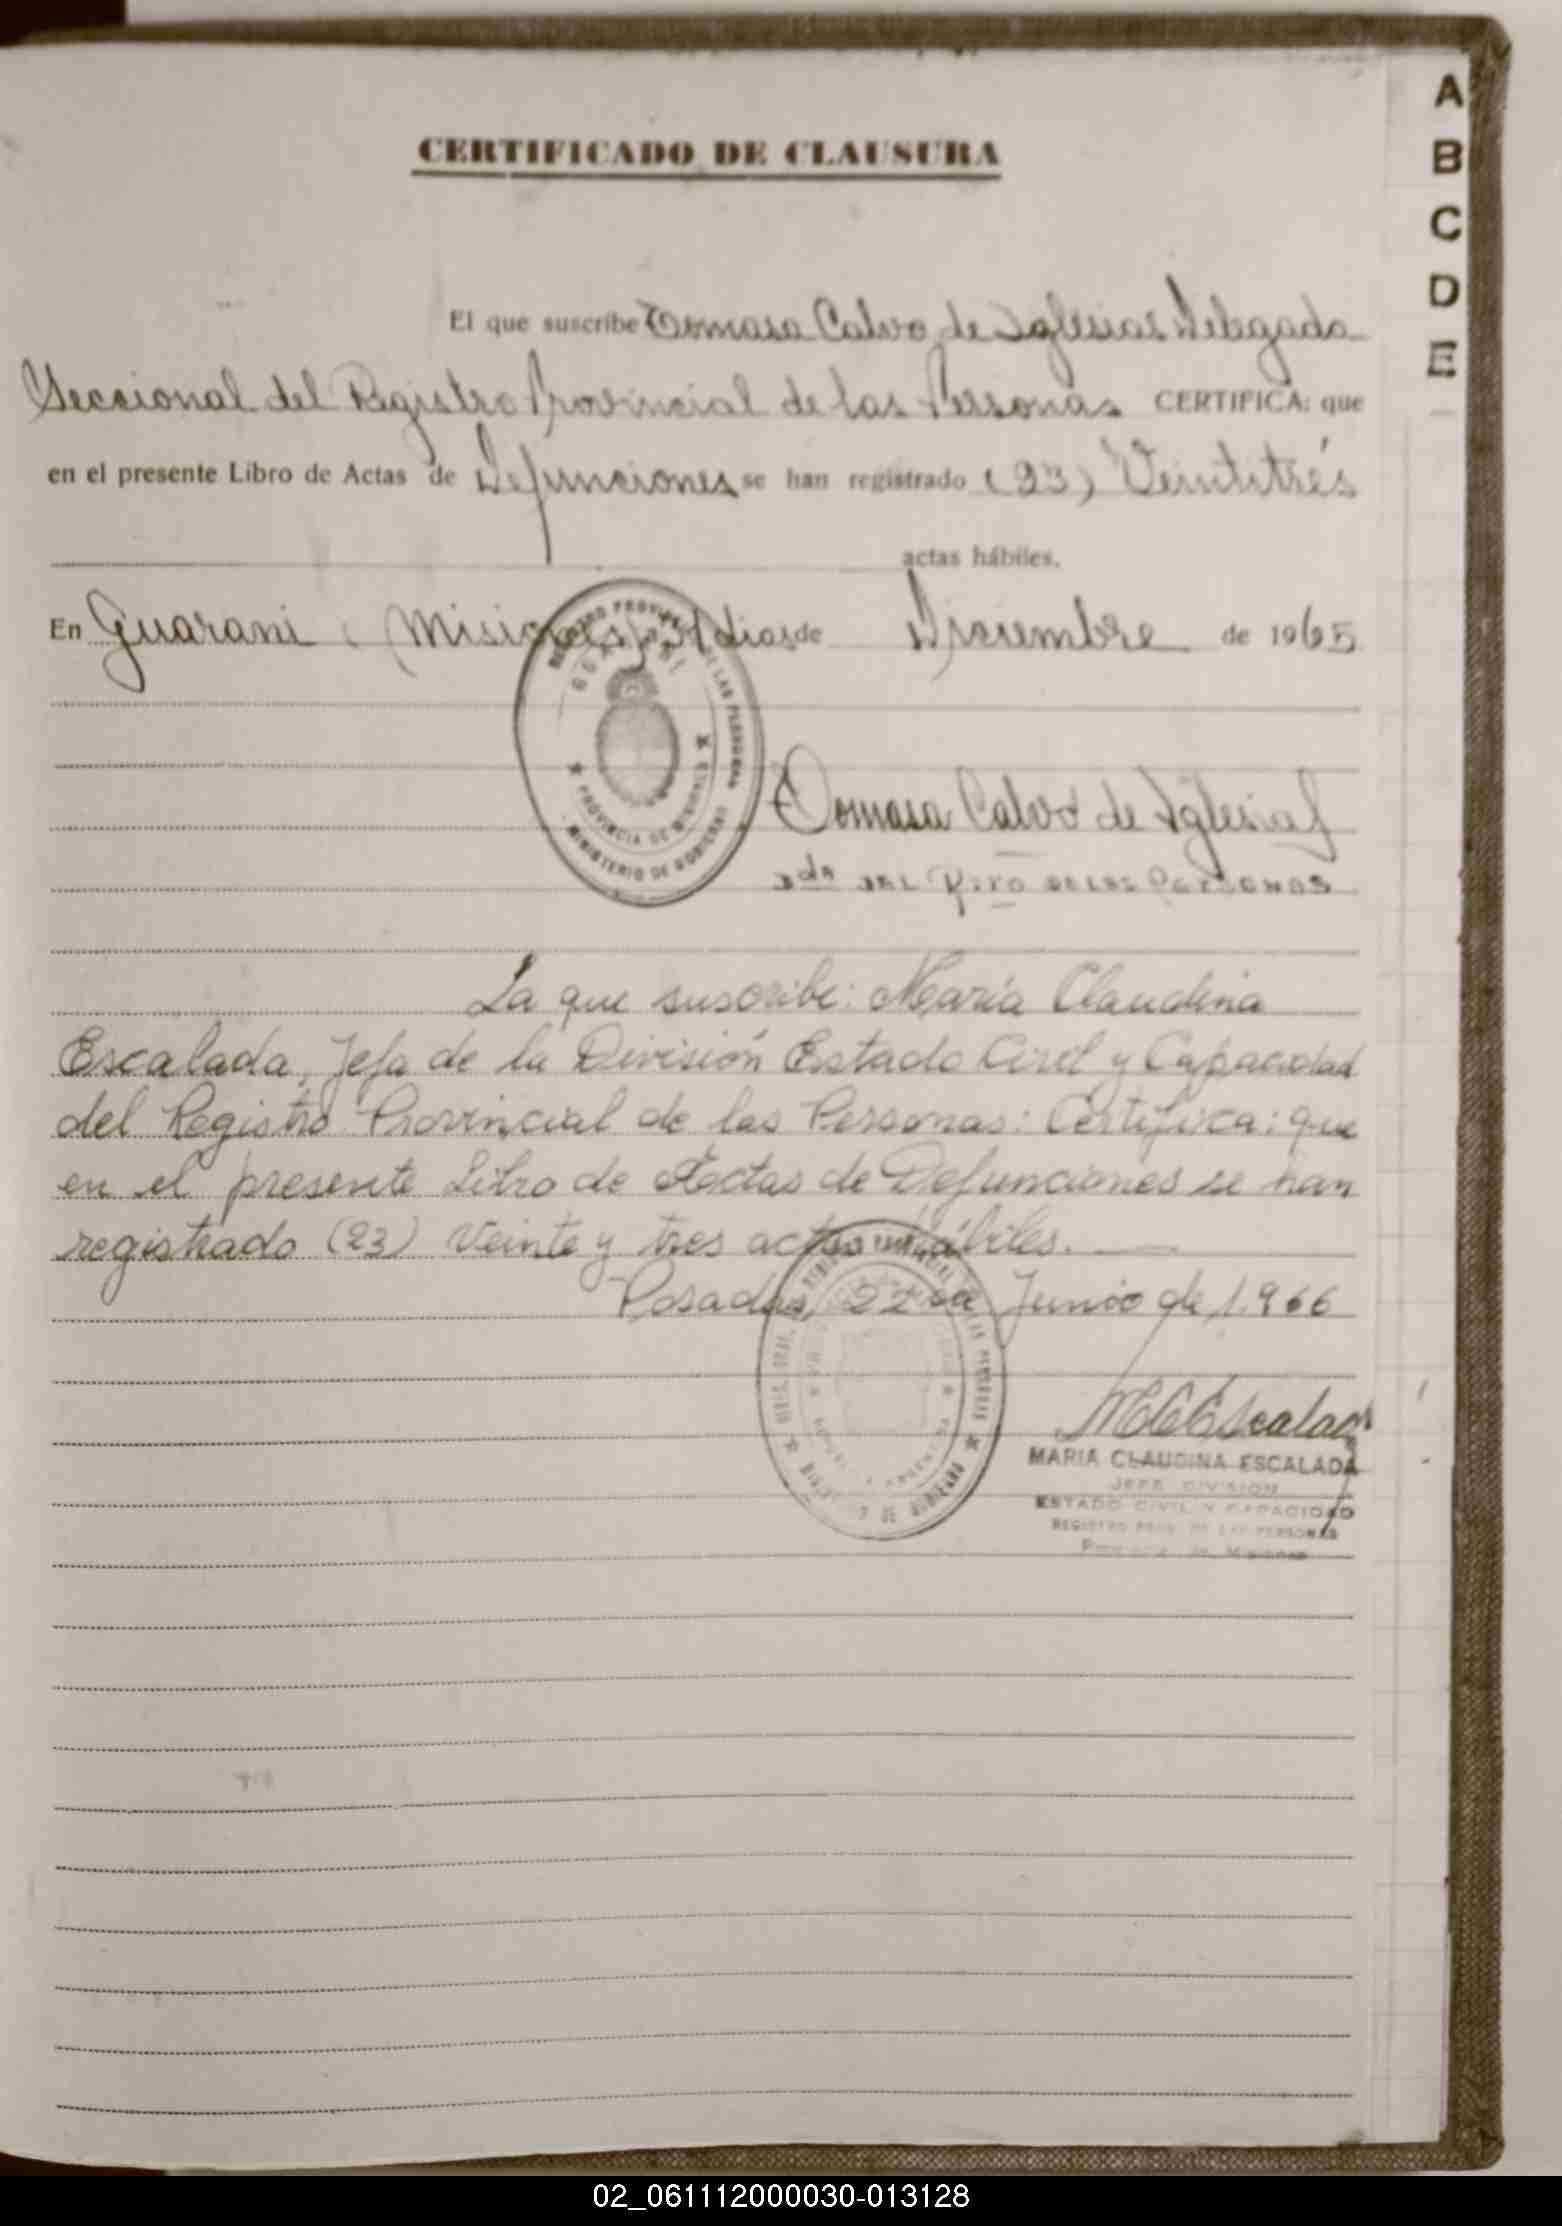 CERTIFICADO DE CLAUSURA
A
B
C
D
E
El que suscribe Tomasa Calvo de Iglesias Delegada
Seccional del Registro Provincial de las Personas CERTIFICA: que
en el presente Libro de Actas de Defunciones se han registrado (23) Veintitrés
actas hábiles.
En Guaraní, Misiones, 31 dias de Diciembre de 1965
REGISTRO PROVINCIAL DE LAS PERSONAS
GUARANI
PROVINCIA DE MISIONES
MINISTERIO DE GOBIERNO
Tomasa Calvo de Iglesias
de las Personas
La que suscribe: María Claudina
Escalada, Jefa de la División Estado Civil y Capacidad
del Registro Provincial de las Personas: Certifica: que
en el presente Libro de Actas de Defunciones se han
registrado (23) Veinte y tres actas hábiles.
Posadas, 22 de Junio de 1.966
M C Escalada
MARIA CLAUDINA ESCALADA
JEFE DIVISION
ESTADO CIVIL Y CAPACIDAD
REGISTRO PROV. DE LAS PERSONAS
Provincia de Misiones
02_061112000030-013128